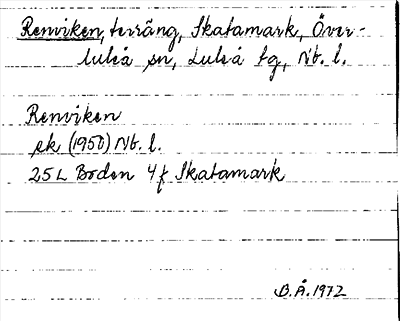 Renviken, terräng, Skatamark, Över-
luleå sn, Luleå tg, Nb. l.
Renviken
ek (1950) Nb. l.
25 L Boden 4 f Skatamark
B.Å. 1972